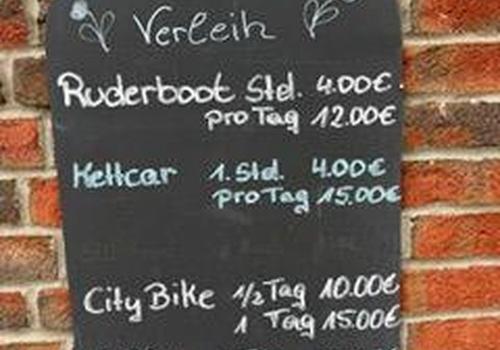 Verleih
Ruderboot Std. 4.00€
pro Tag 12.00€
Kettcar 1. Std. 4.00€
pro Tag 15.00€
City Bike 1/2 Tag 10.00€
1 Tag 15.00€